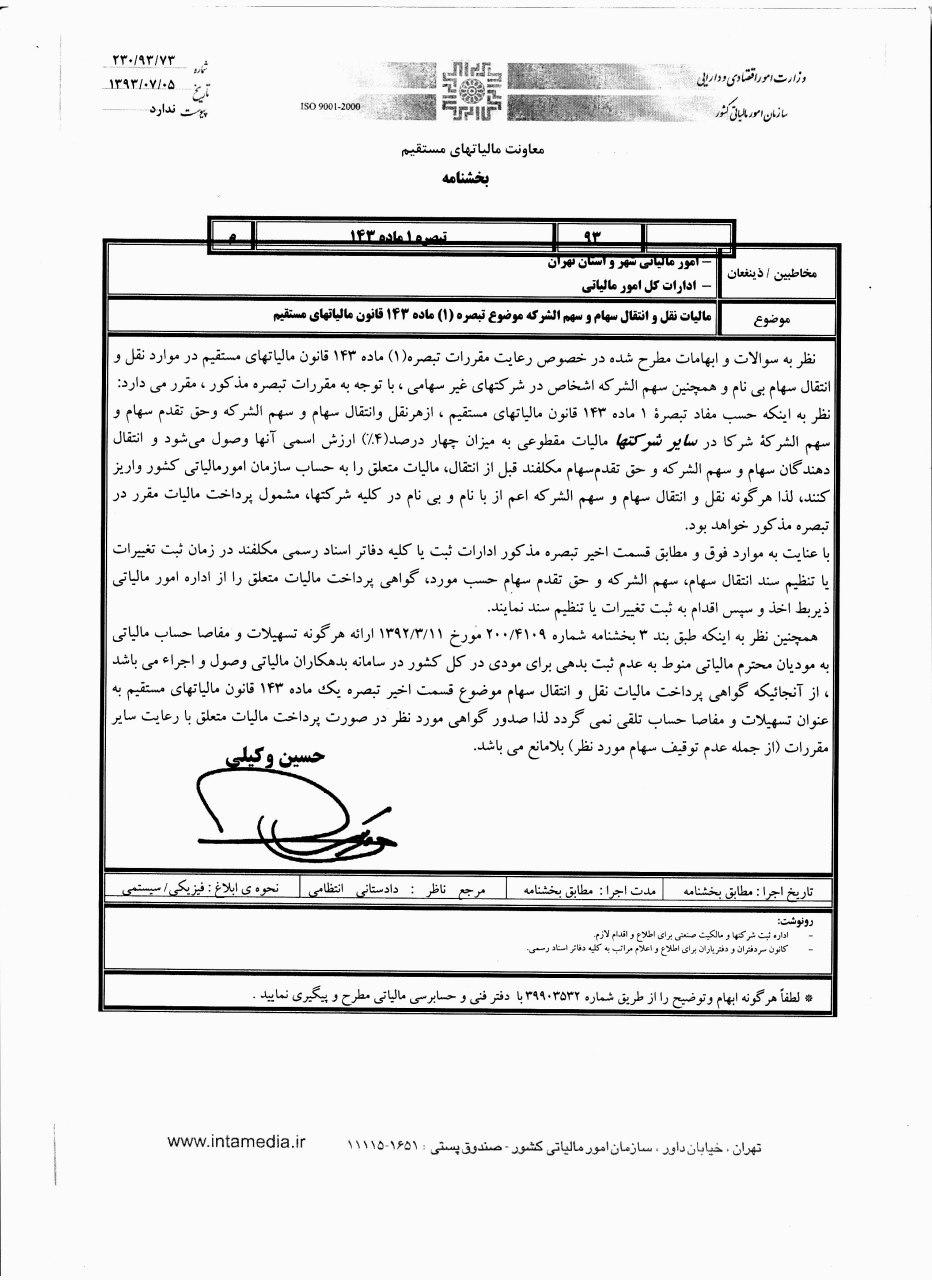 وزارت امور اقتصادی و دارایی
سازمان امور مالیاتی کشور
ISO 9001-2000
شماره ۲۳۰/۹۳/۷۳
تاریخ ۱۳۹۳/۰۷/۰۵
پیوست ندارد
معاونت مالیاتهای مستقیم
بخشنامه
۹۳ تبصره ۱ ماده ۱۴۳ م
مخاطبین / ذینفعان
– امور مالیاتی شهر و استان تهران
– ادارات کل امور مالیاتی
موضوع
مالیات نقل و انتقال سهام و سهم الشرکه موضوع تبصره (۱) ماده ۱۴۳ قانون مالیاتهای مستقیم
نظر به سوالات و ابهامات مطرح شده در خصوص رعایت مقررات تبصره(۱) ماده ۱۴۳ قانون مالیاتهای مستقیم در موارد نقل و
انتقال سهام بی نام و همچنین سهم الشرکه اشخاص در شرکتهای غیر سهامی ، با توجه به مقررات تبصره مذکور ، مقرر می دارد:
نظر به اینکه حسب مفاد تبصرۀ ۱ ماده ۱۴۳ قانون مالیاتهای مستقیم ، ازهرنقل وانتقال سهام و سهم الشرکه وحق تقدم سهام و
سهم الشرکۀ شرکا در سایر شرکتها مالیات مقطوعی به میزان چهار درصد(۴٪) ارزش اسمی آنها وصول می‌شود و انتقال
دهندگان سهام و سهم الشرکه و حق تقدم‌سهام مکلفند قبل از انتقال، مالیات متعلق را به حساب سازمان امورمالیاتی کشور واریز
کنند، لذا هرگونه نقل و انتقال سهام و سهم الشرکه اعم از با نام و بی نام در کلیه شرکتها، مشمول پرداخت مالیات مقرر در
تبصره مذکور خواهد بود.
با عنایت به موارد فوق و مطابق قسمت اخیر تبصره مذکور ادارات ثبت یا کلیه دفاتر اسناد رسمی مکلفند در زمان ثبت تغییرات
یا تنظیم سند انتقال سهام، سهم الشرکه و حق تقدم سهام حسب مورد، گواهی پرداخت مالیات متعلق را از اداره امور مالیاتی
ذیربط اخذ و سپس اقدام به ثبت تغییرات یا تنظیم سند نمایند.
همچنین نظر به اینکه طبق بند ۳ بخشنامه شماره ۲۰۰/۴۱۰۹ مورخ ۱۳۹۲/۳/۱۱ ارائه هرگونه تسهیلات و مفاصا حساب مالیاتی
به مودیان محترم مالیاتی منوط به عدم ثبت بدهی برای مودی در کل کشور در سامانه بدهکاران مالیاتی وصول و اجراء می باشد
، از آنجائیکه گواهی پرداخت مالیات نقل و انتقال سهام موضوع قسمت اخیر تبصره یک ماده ۱۴۳ قانون مالیاتهای مستقیم به
عنوان تسهیلات و مفاصا حساب تلقی نمی گردد لذا صدور گواهی مورد نظر در صورت پرداخت مالیات متعلق با رعایت سایر
مقررات (از جمله عدم توقیف سهام مورد نظر) بلامانع می باشد.
حسین وکیلی
تاریخ اجرا : مطابق بخشنامه مدت اجرا : مطابق بخشنامه مرجع ناظر : دادستانی انتظامی نحوه ی ابلاغ : فیزیکی/ سیستمی
رونوشت:
– اداره ثبت شرکتها و مالکیت صنعتی برای اطلاع و اقدام لازم.
– کانون سردفتران و دفتریاران برای اطلاع و اعلام مراتب به کلیه دفاتر اسناد رسمی.
* لطفاً هرگونه ابهام وتوضیح را از طریق شماره ۳۹۹۰۳۵۳۲ با دفتر فنی و حسابرسی مالیاتی مطرح و پیگیری نمایید .
تهران ، خیابان داور ، سازمان امور مالیاتی کشور - صندوق پستی : ۱۶۵۱-۱۱۱۱۵ www.intamedia.ir